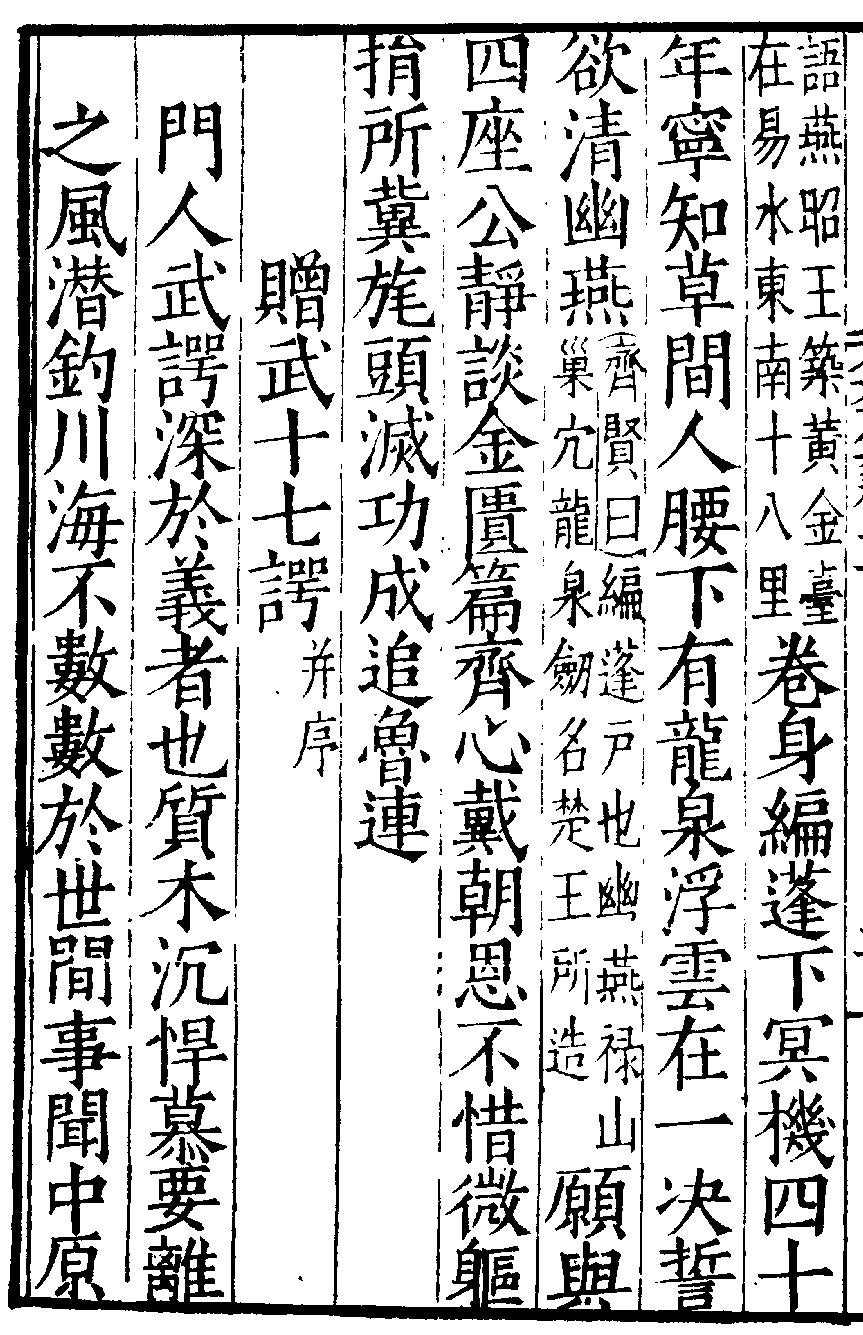 語燕昭王築黃金臺在易水東南十八里卷身編蓬下冥機四十
年寧知草間人腰下有龍泉浮雲在一决誓
欲清幽燕(齊賢曰)編蓬戶也幽燕禄山巢穴龍泉劔名楚王所造願與
四座公靜談金匱篇齊心戴朝恩不惜微軀
捐所冀旄頭滅功成追魯連
贈武十七諤并序
門人武諤深於義者也質木沉悍慕要離
之風潜釣川海不數數於世間事聞中原